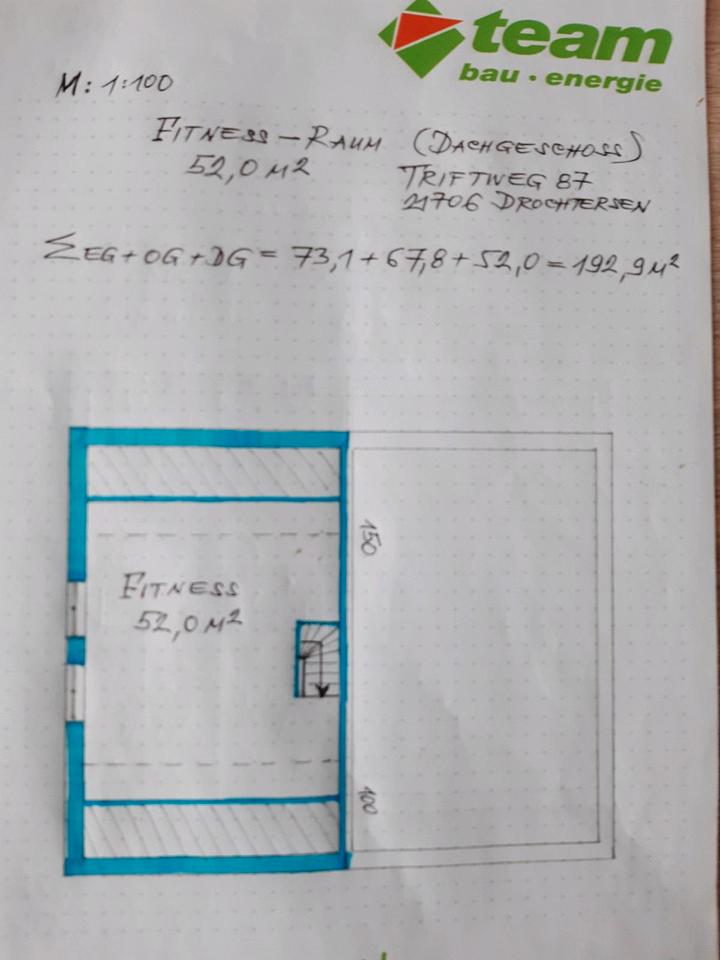 team
bau · energie
M: 1:100
FITNESS – RAUM (DACHGESCHOSS)
52,0 M² TRIFTWEG 87
21706 DROCHTERSEN
∑ EG + OG + DG = 73,1 + 67,8 + 52,0 = 192,9 M²
150
FITNESS
52,0 M²
100